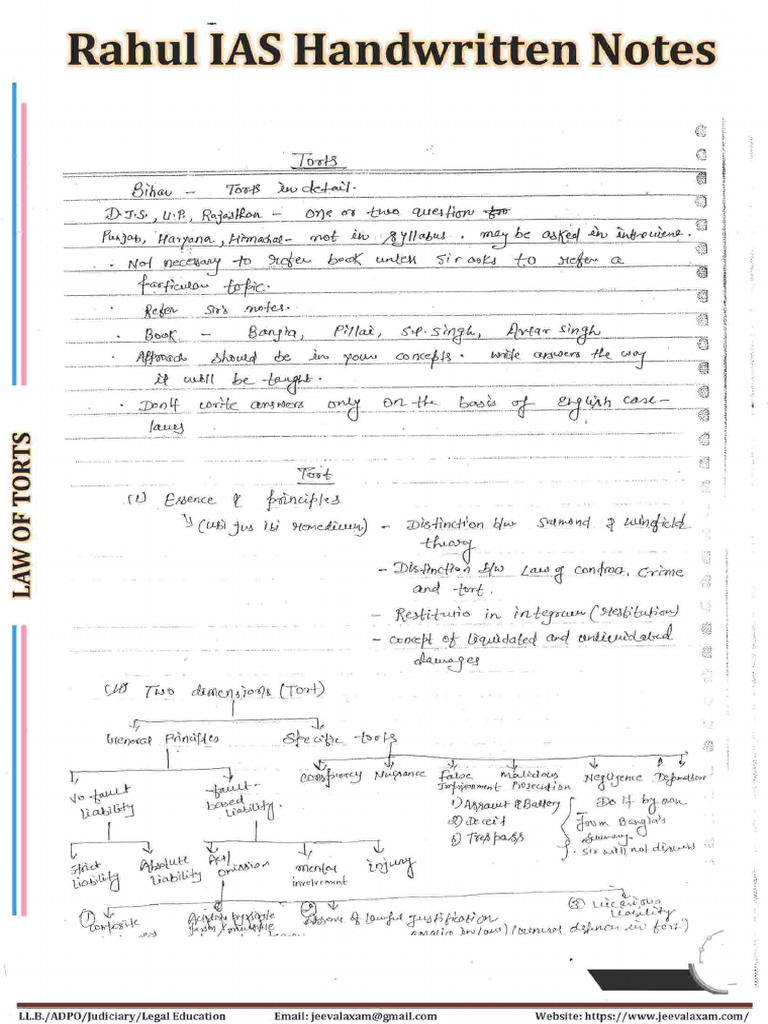 Rahul IAS Handwritten Notes
LAW OF TORTS
Torts
Bihar – Torts in detail.
D.J.S., U.P., Rajasthan – one or two question
Punjab, Haryana, Himachal – not in syllabus. may be asked in
• Not necessary to refer book unless Sir asks to refer a
particular topic.
• Refer Sir's notes.
• Book – Bangia, Pillai, S.P. Singh, Avtar Singh
• should be in your concepts. write answers the way
it will be taught.
• Don't write answers only on the basis of English case-
laws
Tort
(1) Essence & principles
(ubi jus ibi remedium) – Distinction b/w Salmond & Winfield
theory
– Distinction b/w Law of contract, Crime
and tort.
– Restitutio in integrum (restitution)
– concept of liquidated and unliquidated
damages
(11) Two dimensions (Tort)
General Principles Specific torts
Conspiracy Nuisance False Imprisonment Malicious Prosecution Negligence Defamation
No-fault liability fault-based liability.
1) Assault & Battery
2) Deceit
3) Trespass
Do it by own
From Bangia's
Summary
• Sir will not discuss
Strict liability Absolute liability Act/omission mental involvement injury
① Composite ② Absence of lawful justification ③ Vicarious liability
(General defences in tort)
LL.B./ADPO/Judiciary/Legal Education Email: jeevalaxam@gmail.com Website: https://www.jeevalaxam.com/